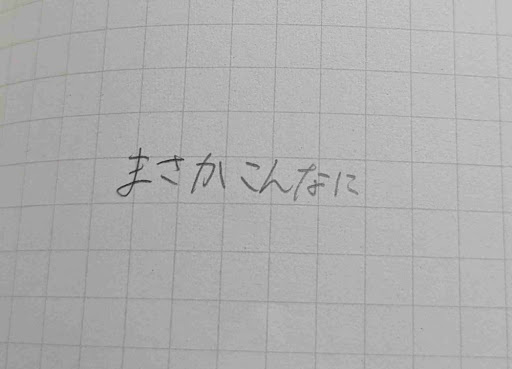 まさかこんなに